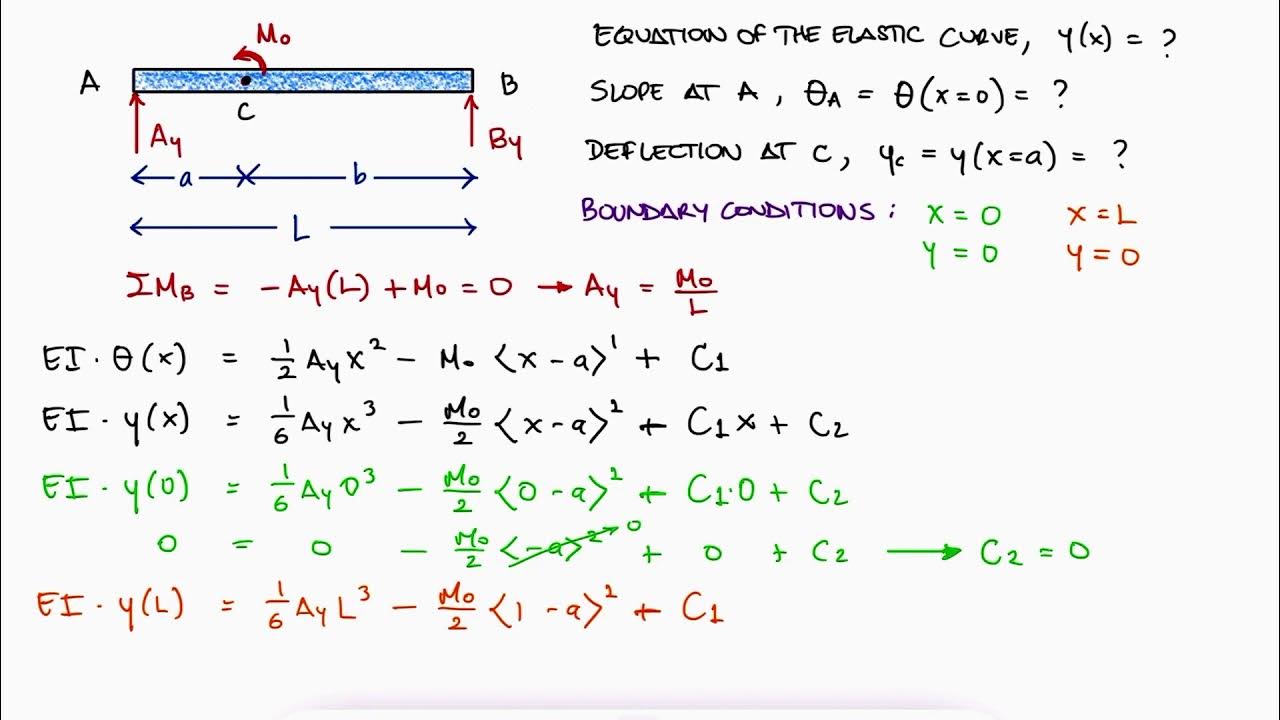 M₀
A B
C
A_y B_y
a b
L
EQUATION OF THE ELASTIC CURVE, y(x) = ?
SLOPE AT A, θ_A = θ(x=0) = ?
DEFLECTION AT C, y_c = y(x=a) = ?
BOUNDARY CONDITIONS: x = 0 x = L
y = 0 y = 0
ΣM_B = -A_y(L) + M₀ = 0 → A_y = M₀/L
EI · θ(x) = 1/2 A_y x² - M₀ ⟨x - a⟩¹ + C₁
EI · y(x) = 1/6 A_y x³ - M₀/2 ⟨x - a⟩² + C₁x + C₂
EI · y(0) = 1/6 A_y 0³ - M₀/2 ⟨0 - a⟩² + C₁·0 + C₂
0 = 0 - M₀/2 ⟨-a⟩² 0 + 0 + C₂ → C₂ = 0
EI · y(L) = 1/6 A_y L³ - M₀/2 ⟨1 - a⟩² + C₁